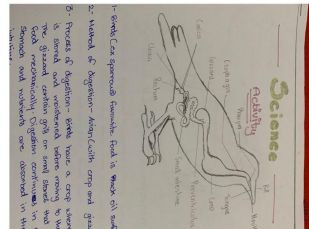 Science
Activity
Pharynx
Esophagus
Crop
Liver
Proventriculus
Small intestine
Rectum
1- Birds (ex sparrow) favourite food is Black oil sunf
2- Method of digestion- Avian (with crop and gizz
3- Process of digestion- Birds have a crop where
is stored and moistened before moving to the
The gizzard contain grits or small stones that
food mechanically. Digestion continues in
stomach and nutrients are absorbed in th